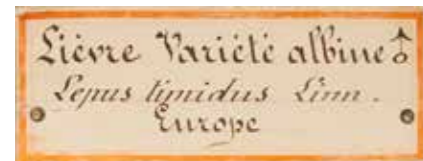 Lièvre Variété albine ♂
Lepus timidus Linn.
Europe